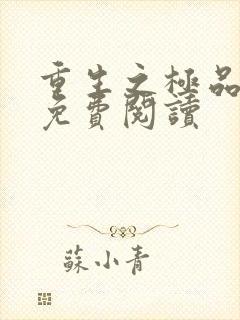 重生之極品
免費閱讀
蘇小青